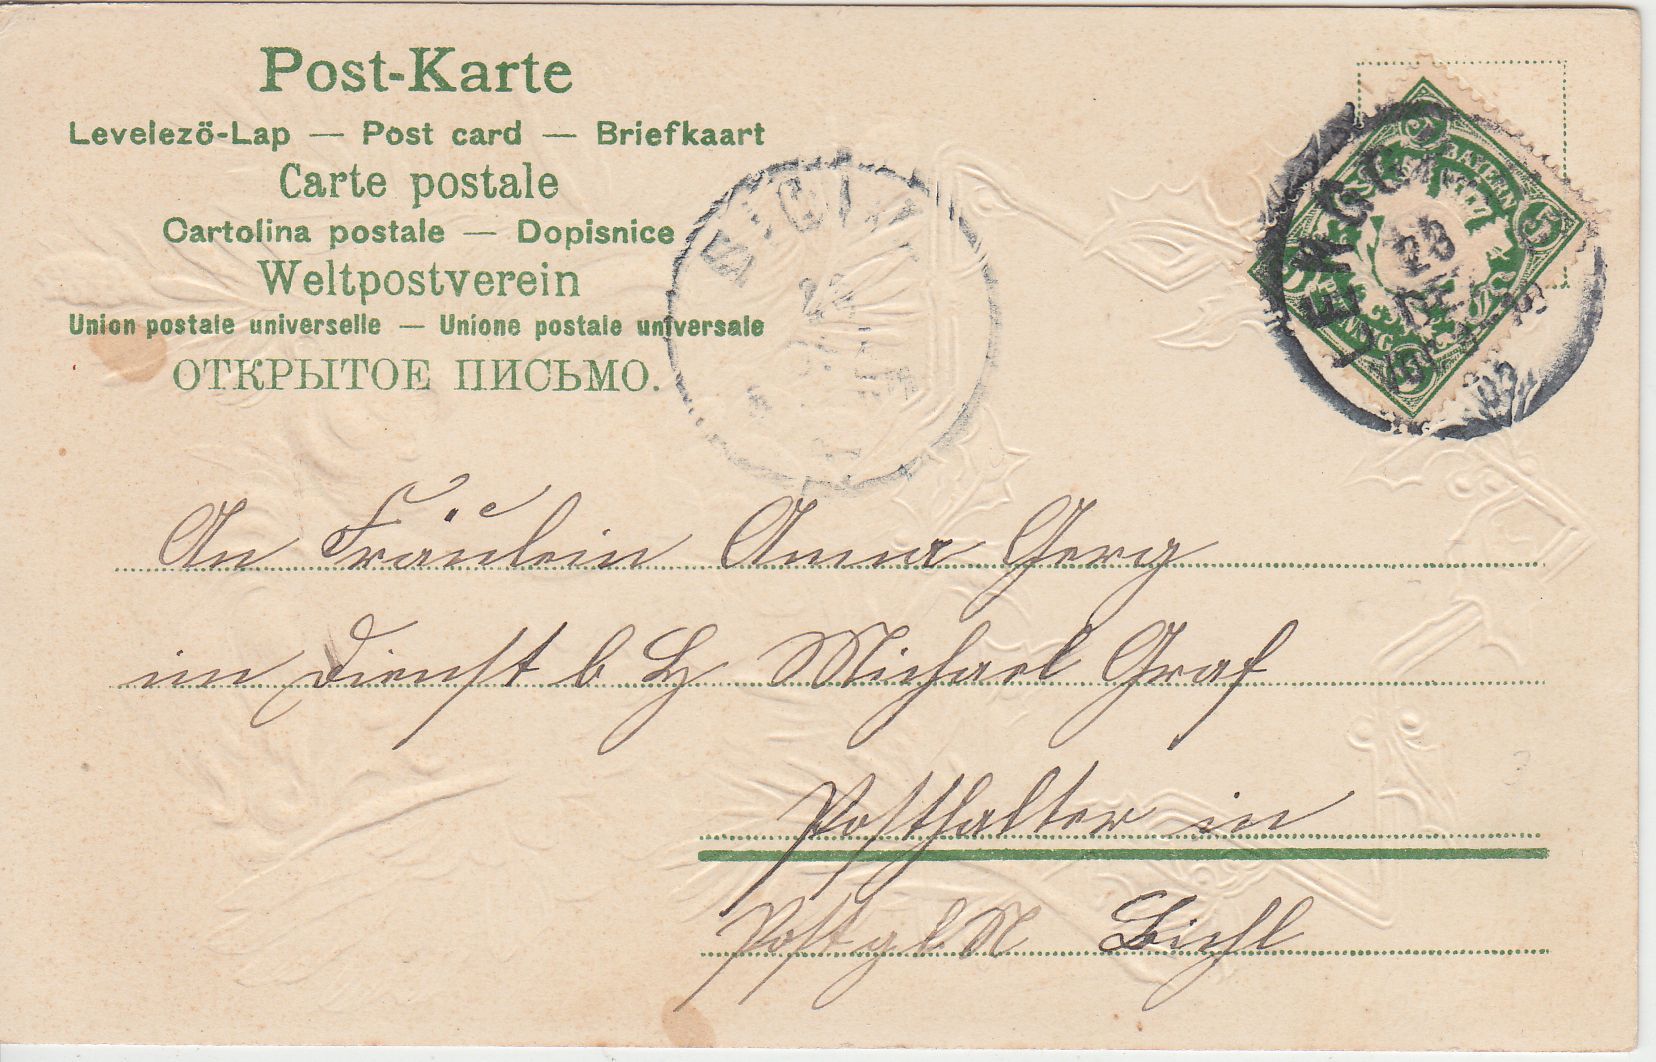 Post-Karte
Levelezö-Lap — Post card — Briefkaart
Carte postale
Cartolina postale — Dopisnice
Weltpostverein
Union postale universelle — Unione postale universale
ОТКРЫТОЕ ПИСЬМО.
BAYERN
5
LENGGR
23
DE
05
BICHL
An Fräulein Anna Gerg
im Dienst b H Michael Graf
Posthalter in
Post gl. N Bichl